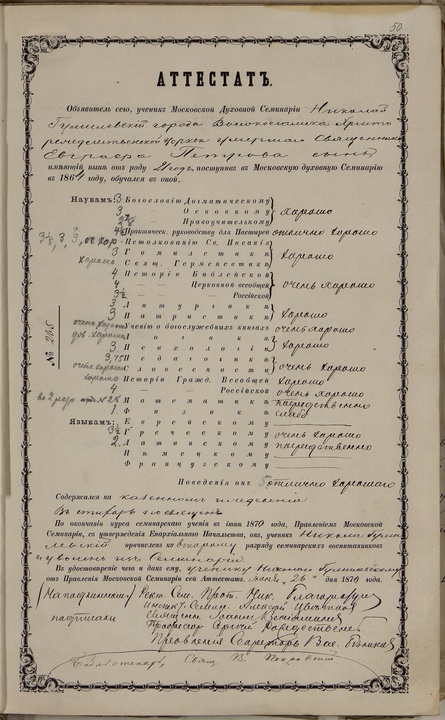 50
АТТЕСТАТЪ.
Объявитель сего, ученикъ Московской Духовной Семинаріи Николай
Гумилевскій города Волоколамска Христо
рождественской Церкви умершаго Священника
Евграфа Петрова сынъ
имѣющій нынѣ отъ роду 21 годъ, поступивъ въ Московскую духовную Семинарію
въ 1864 году, обучался въ оной,
Наукамъ: 3 Богословію Догматическому
3 — Основному
— Нравоучительному } хорошо
4½ Практическ. руководству для Пастырей отлично хорошо
3½, 3, 3, оч хор — Истолкованію Св. Писанія
3 Гомилетикѣ } хорошо
хорошо Свящ. Герменевтикѣ
4 Исторіи Библейской
4 — Церковной всеобщей } очень хорошо
3½ — — Россійской
3 Литургикѣ
3 Патристикѣ } хорошо
очень хорошо Ученію о богослужебныхъ книгахъ очень хорошо
дов. хорошо Логикѣ
3 Психологіи } хорошо
3,75 Педагогикѣ
очень хорошо Словесности } очень хорошо
хорошо Исторіи Гражд. Всеобщей хорошо
4 — — Россійской очень хорошо
2½ Математикѣ посредственно
1 Физикѣ слабо
Языкамъ: Еврейскому
3½ Греческому очень хорошо
2 Латинскому посредственно
Нѣмецкому
Французскому
№ 265
Поведенія онъ отлично хорошаго
Содержался на казенномъ
Въ стихарь посвященъ
По окончаніи курса семинарскаго ученія въ іюнѣ 1870 года, Правленіемъ Московской
Семинаріи, съ утвержденія Епархіальнаго Начальства, онъ, ученикъ Николай Гуми
левскій причисленъ ко второму разряду семинарскихъ воспитанниковъ
и уволенъ изъ Семинаріи
Въ удостовѣреніе чего и данъ ему, ученику Николаю Гумилевскому
отъ Правленія Московской Семинаріи сей Аттестатъ. Іюня „26" дня 1870 года.
(На подлинномъ) Рект. Сем. Прот. Ник. Благоразумовъ
Инспект. Семин. Алексѣй Цвѣтковъ
подписали Священн. Іоаннъ
Профессоръ Сергѣй Рождественскій
Правленія Секретарь Вас.
Библіотекарь, Свящ. В. Покровскій